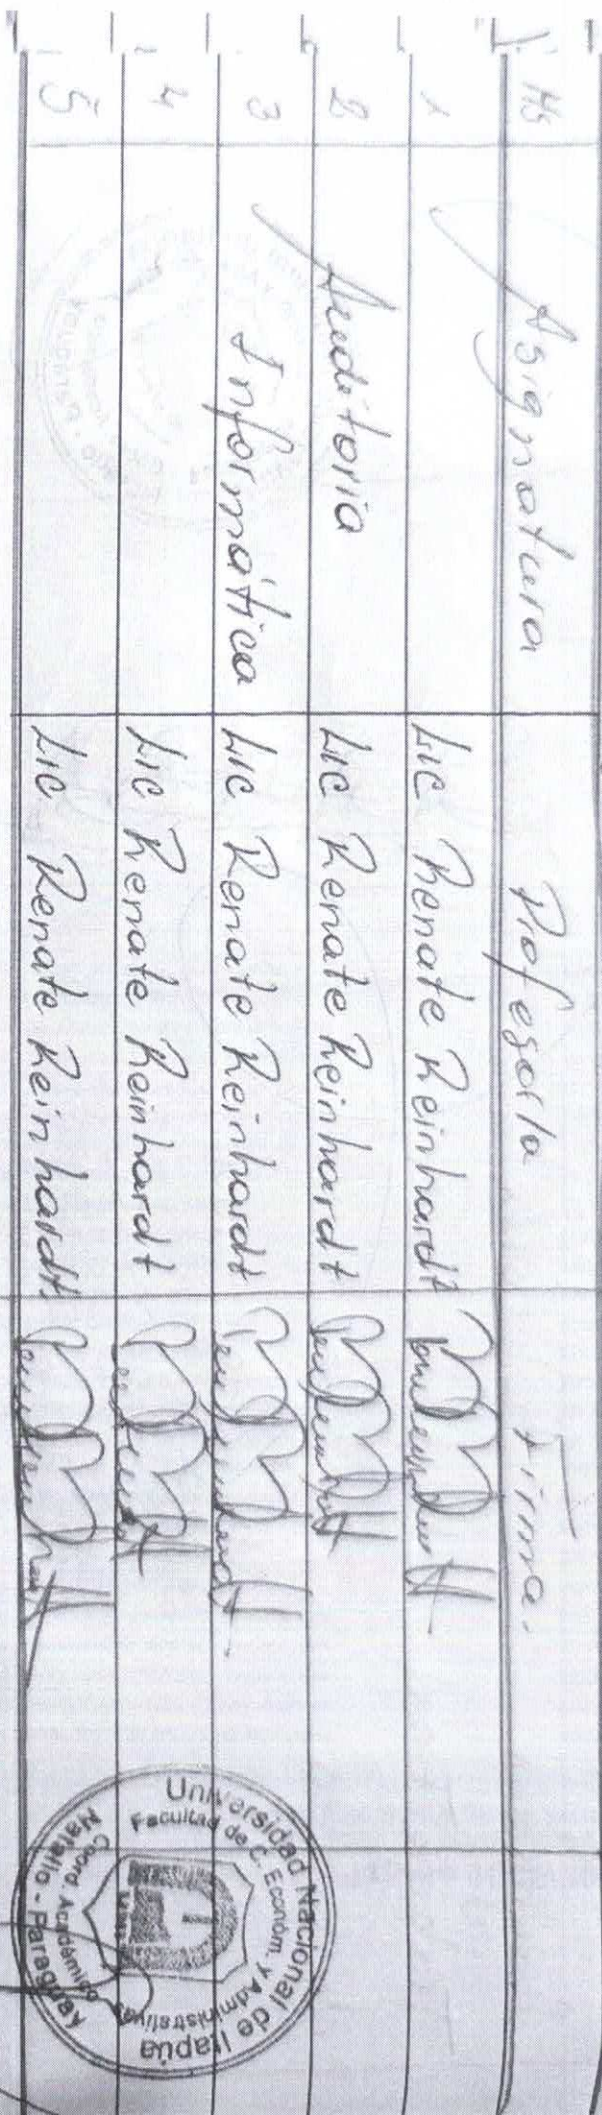 Hs Asignatura Profesor/a Firma.
1 Lic Renate Reinhardt
2 Auditoria Lic Renate Reinhardt
3 Informática Lic Renate Reinhardt
4 Lic Renate Reinhardt
5 Lic Renate Reinhardt.
Universidad Nacional de Itapúa
Facultad de C. Económ. y Administrativas
Coord. Académica
Natalio - Paraguay